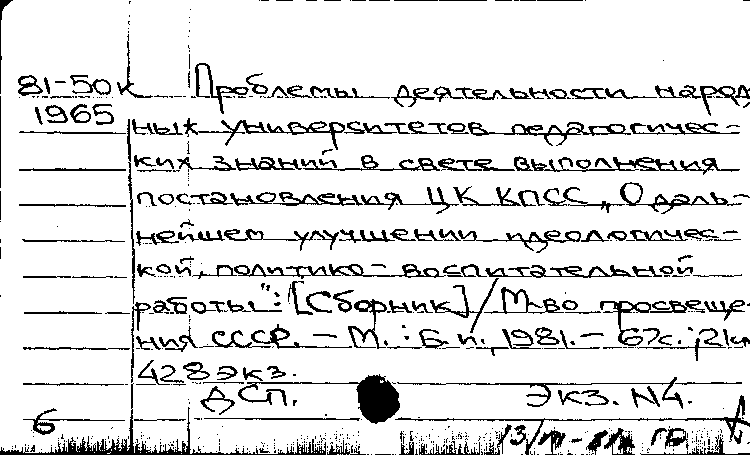 81-50к Проблемы деятельности народ
1965 ных университетов педагогичес-
ких знаний в свете выполнения
постановления ЦК КПСС „О даль-
нейшем улучшении идеологичес-
кой, политико-воспитательной
работы": [Сборник] / М-во просвеще-
ния СССР. - М. : Б.и., 1981. - 67с. ; 21см
428 экз.
ДСП. Экз. N4.
6